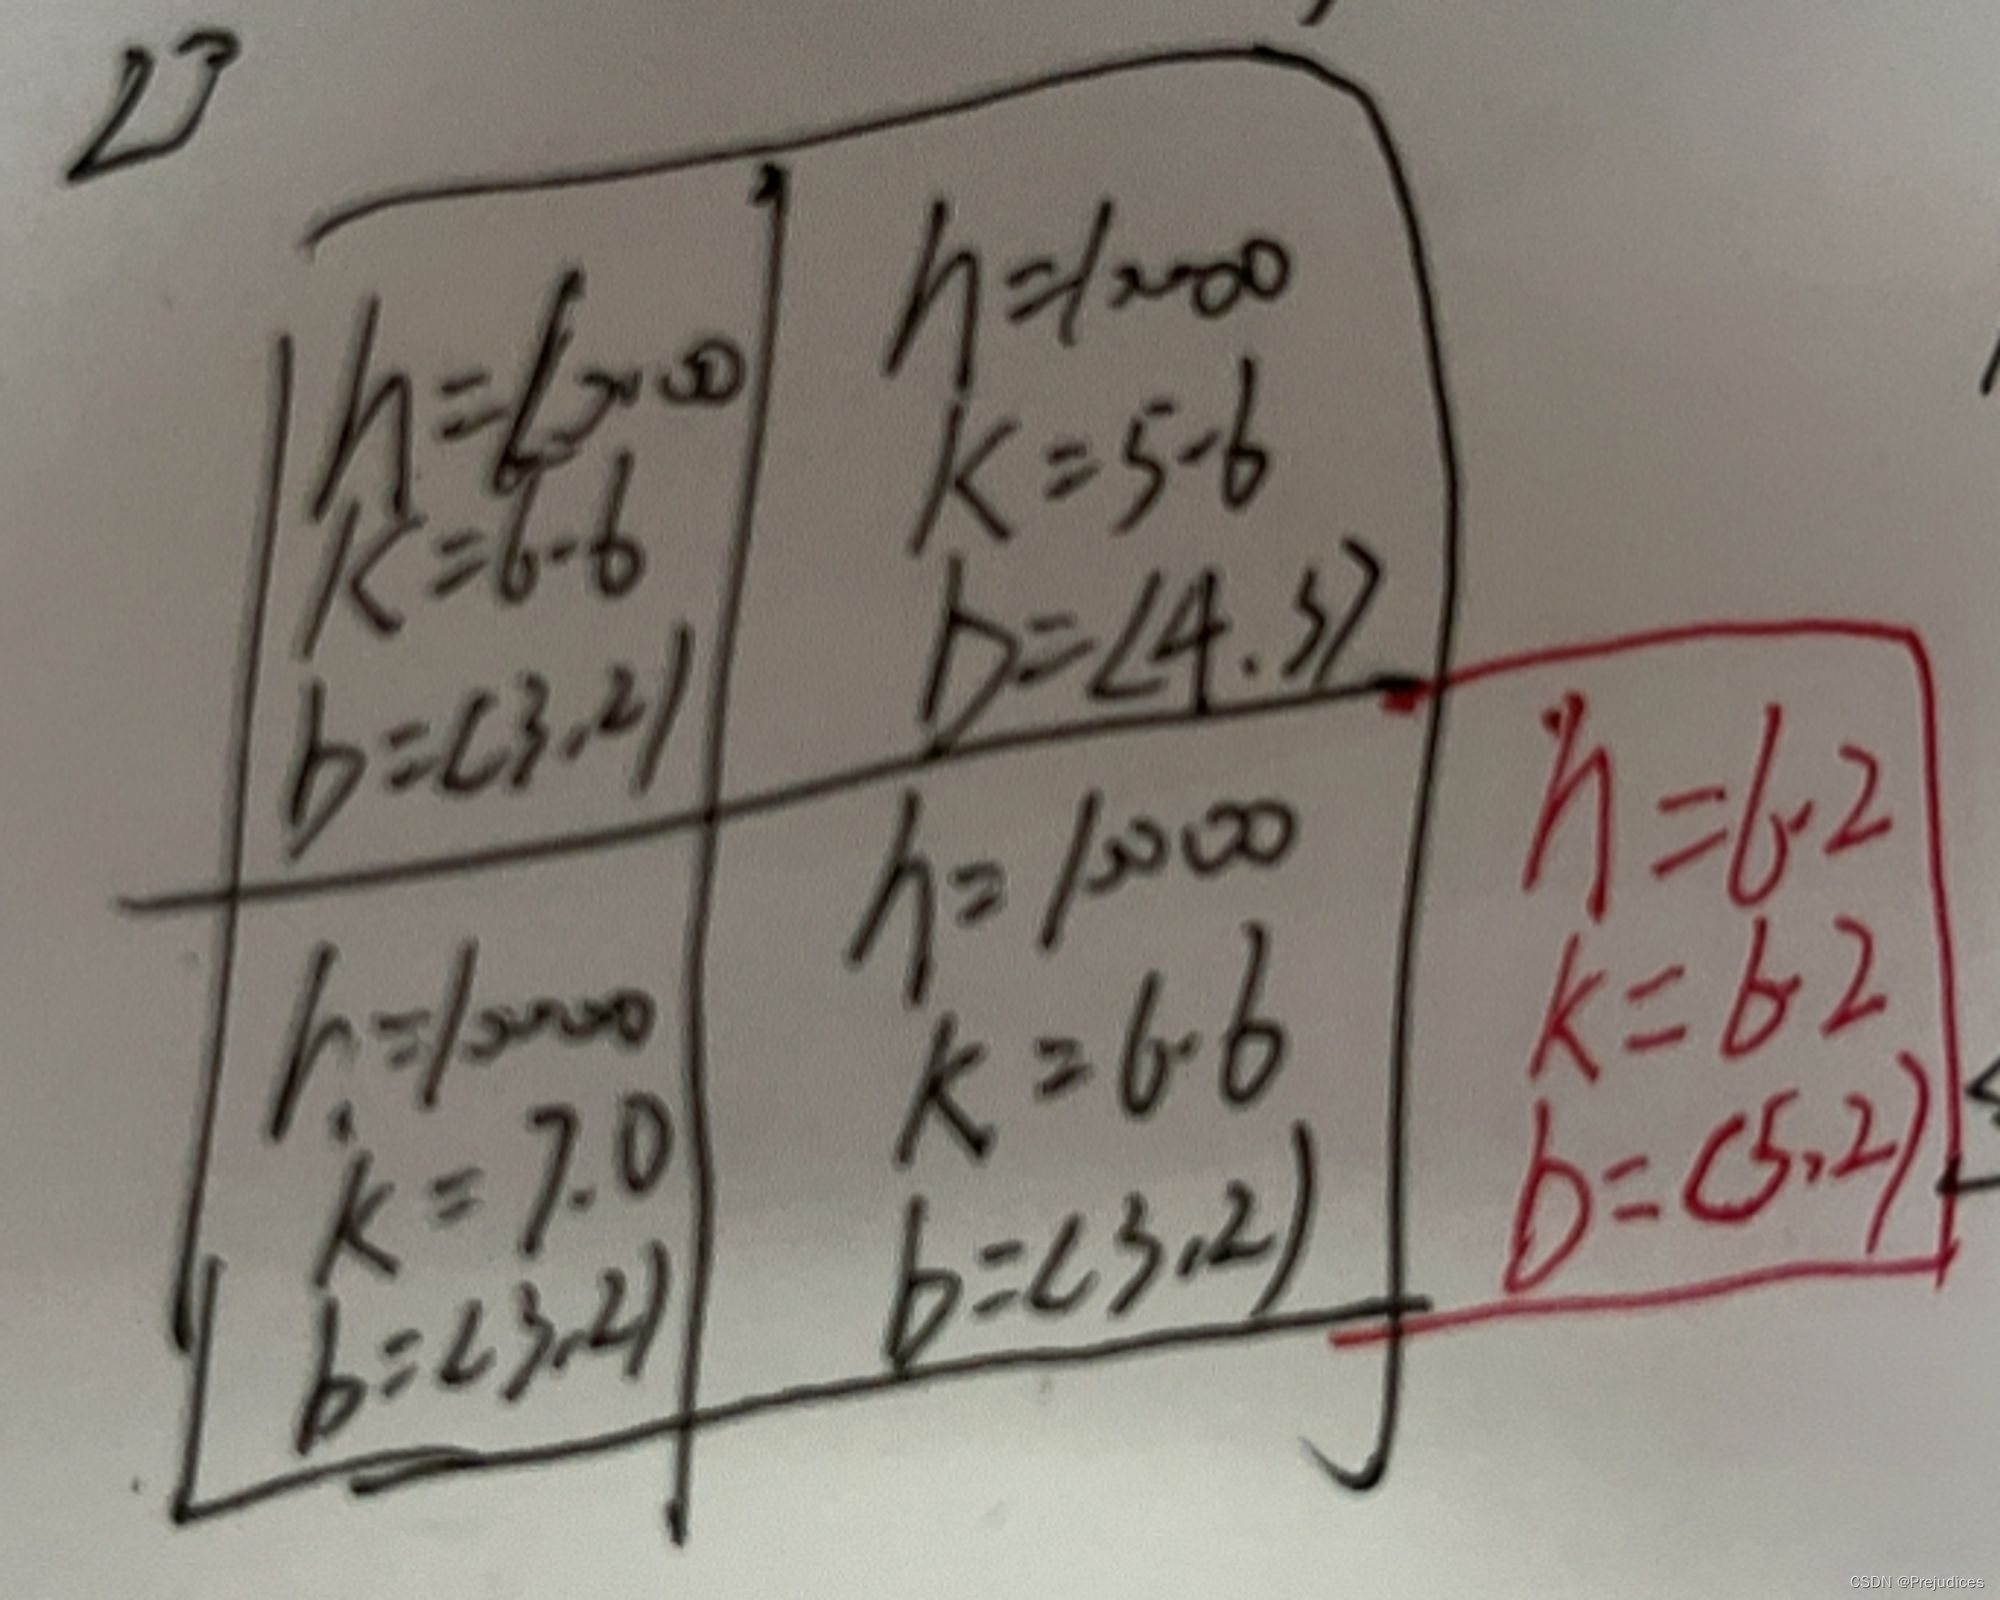 U
h=10000
k=6.6
b=(3.2)
h=10000
k=5.6
b=(4.3)
h=10000
k=7.0
b=(3.2)
h=10000
k=6.6
b=(3.2)
h=6.2
k=6.2
b=(5,2)
CSDN @Prejudices